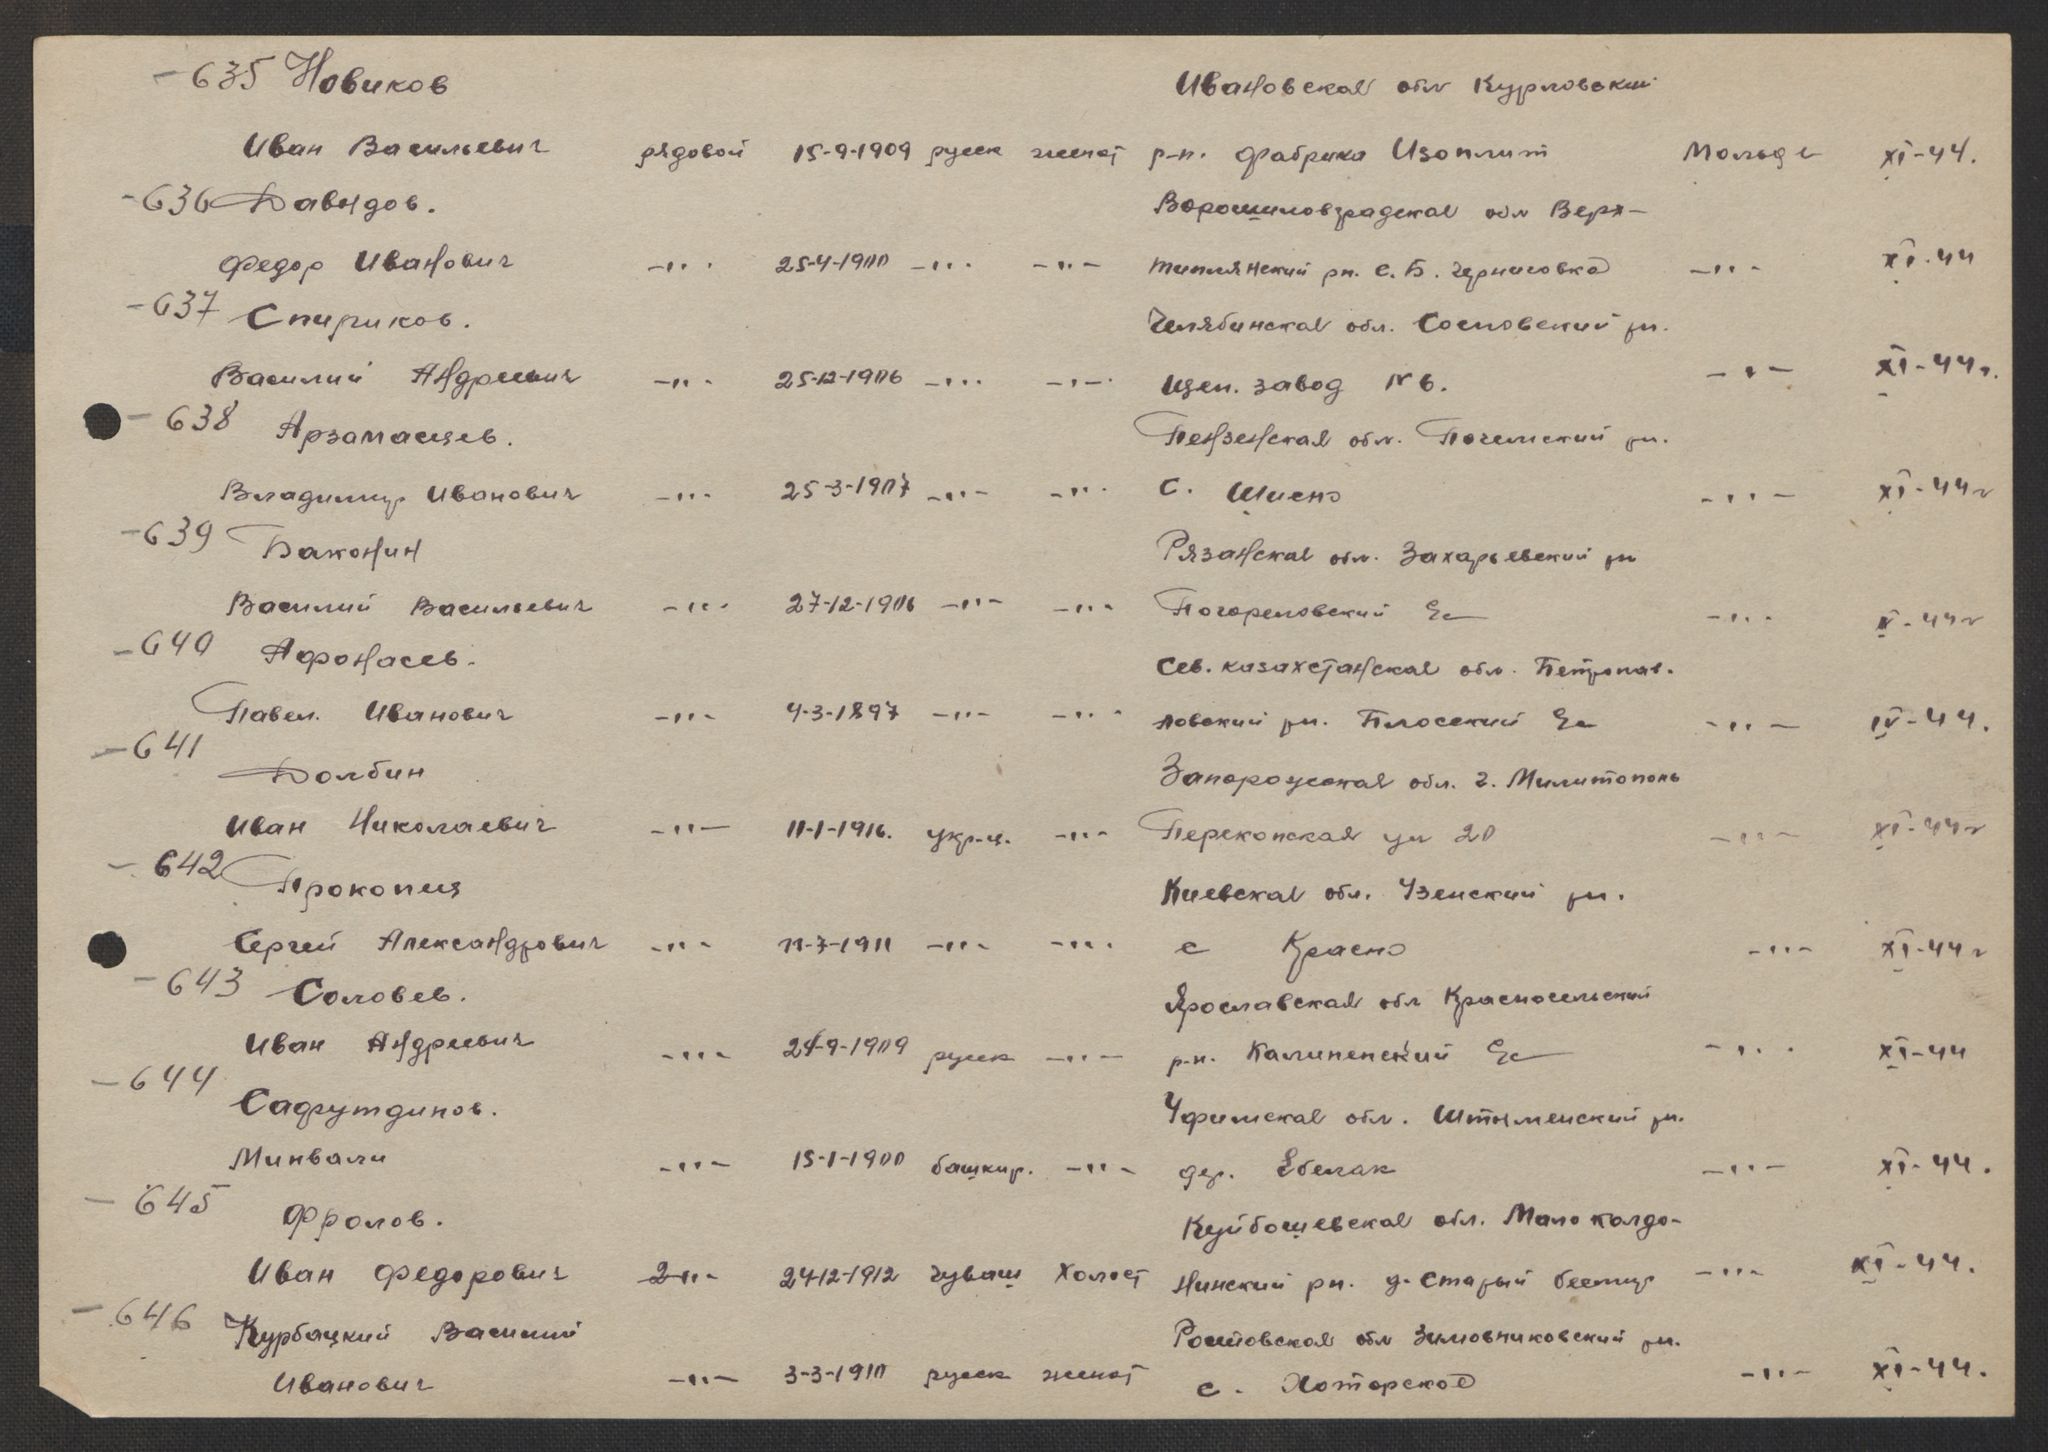 635 Новиков Ивановская обл Курловский
Иван Васильевич рядовой 15-9-1909 русск женат р-н. фабрика Изоплит Мольде XI-44.
636 Давыдов. Ворошиловградская обл Верх-
Федор Иванович -"- 25-4-1900 -"- -"- теплянский рн. с. Б. Черниговка -"- XI-44
637 Спириков. Челябинская обл. Сосновский рн.
Василий Андреевич -"- 25-12-1906 -"- -"- цем. завод № 6. -"- XI-44г.
638 Арзамасцев. Пензенская обл. Пачелмский рн.
Владимир Иванович -"- 25-3-1907 -"- -"- с. -"- XI-44г
639 Баконин Рязанская обл. Захарьевский рн
Василий Васильевич -"- 27-12-1906 -"- -"- Погореловский -"- -44г
640 Афонасев. Сев. казахстанская обл. Петропав-
Павел. Иванович -"- 4-3-1897 -"- -"- ловский рн. Плосский -"- IV-44.
641
Долбин Запорожская обл. г. Милитополь
Иван Николаевич -"- 11-1-1916. укр-ц. -"- Перекопская ул 20 -"- XI-44г
642 Прокопця Киевская обл. Узенский рн.
Сергей Александрович -"- 11-7-1911 -"- -"- с Красно -"- XI-44г
643 Соловев. Ярославская обл Красносельский
Иван Андреевич -"- 24-9-1909 русск -"- р-н. Калиненский -"- XI-44
644
Садрутдинов. Уфимская обл. рн.
Минвали -"- 15-1-1900 башкир. -"- дер. -"- XI-44.
645 Фролов. Куйбошевская обл. Мало колдо-
Иван Федорович -"- 24-12-1912 чуваш холост нинский рн. д. Старый -"- XI-44.
646 Курбацкий Василий Ростовская обл Зимовниковский рн.
Иванович -"- 3-3-1910 русск женат с. Хоторское -"- XI-44.